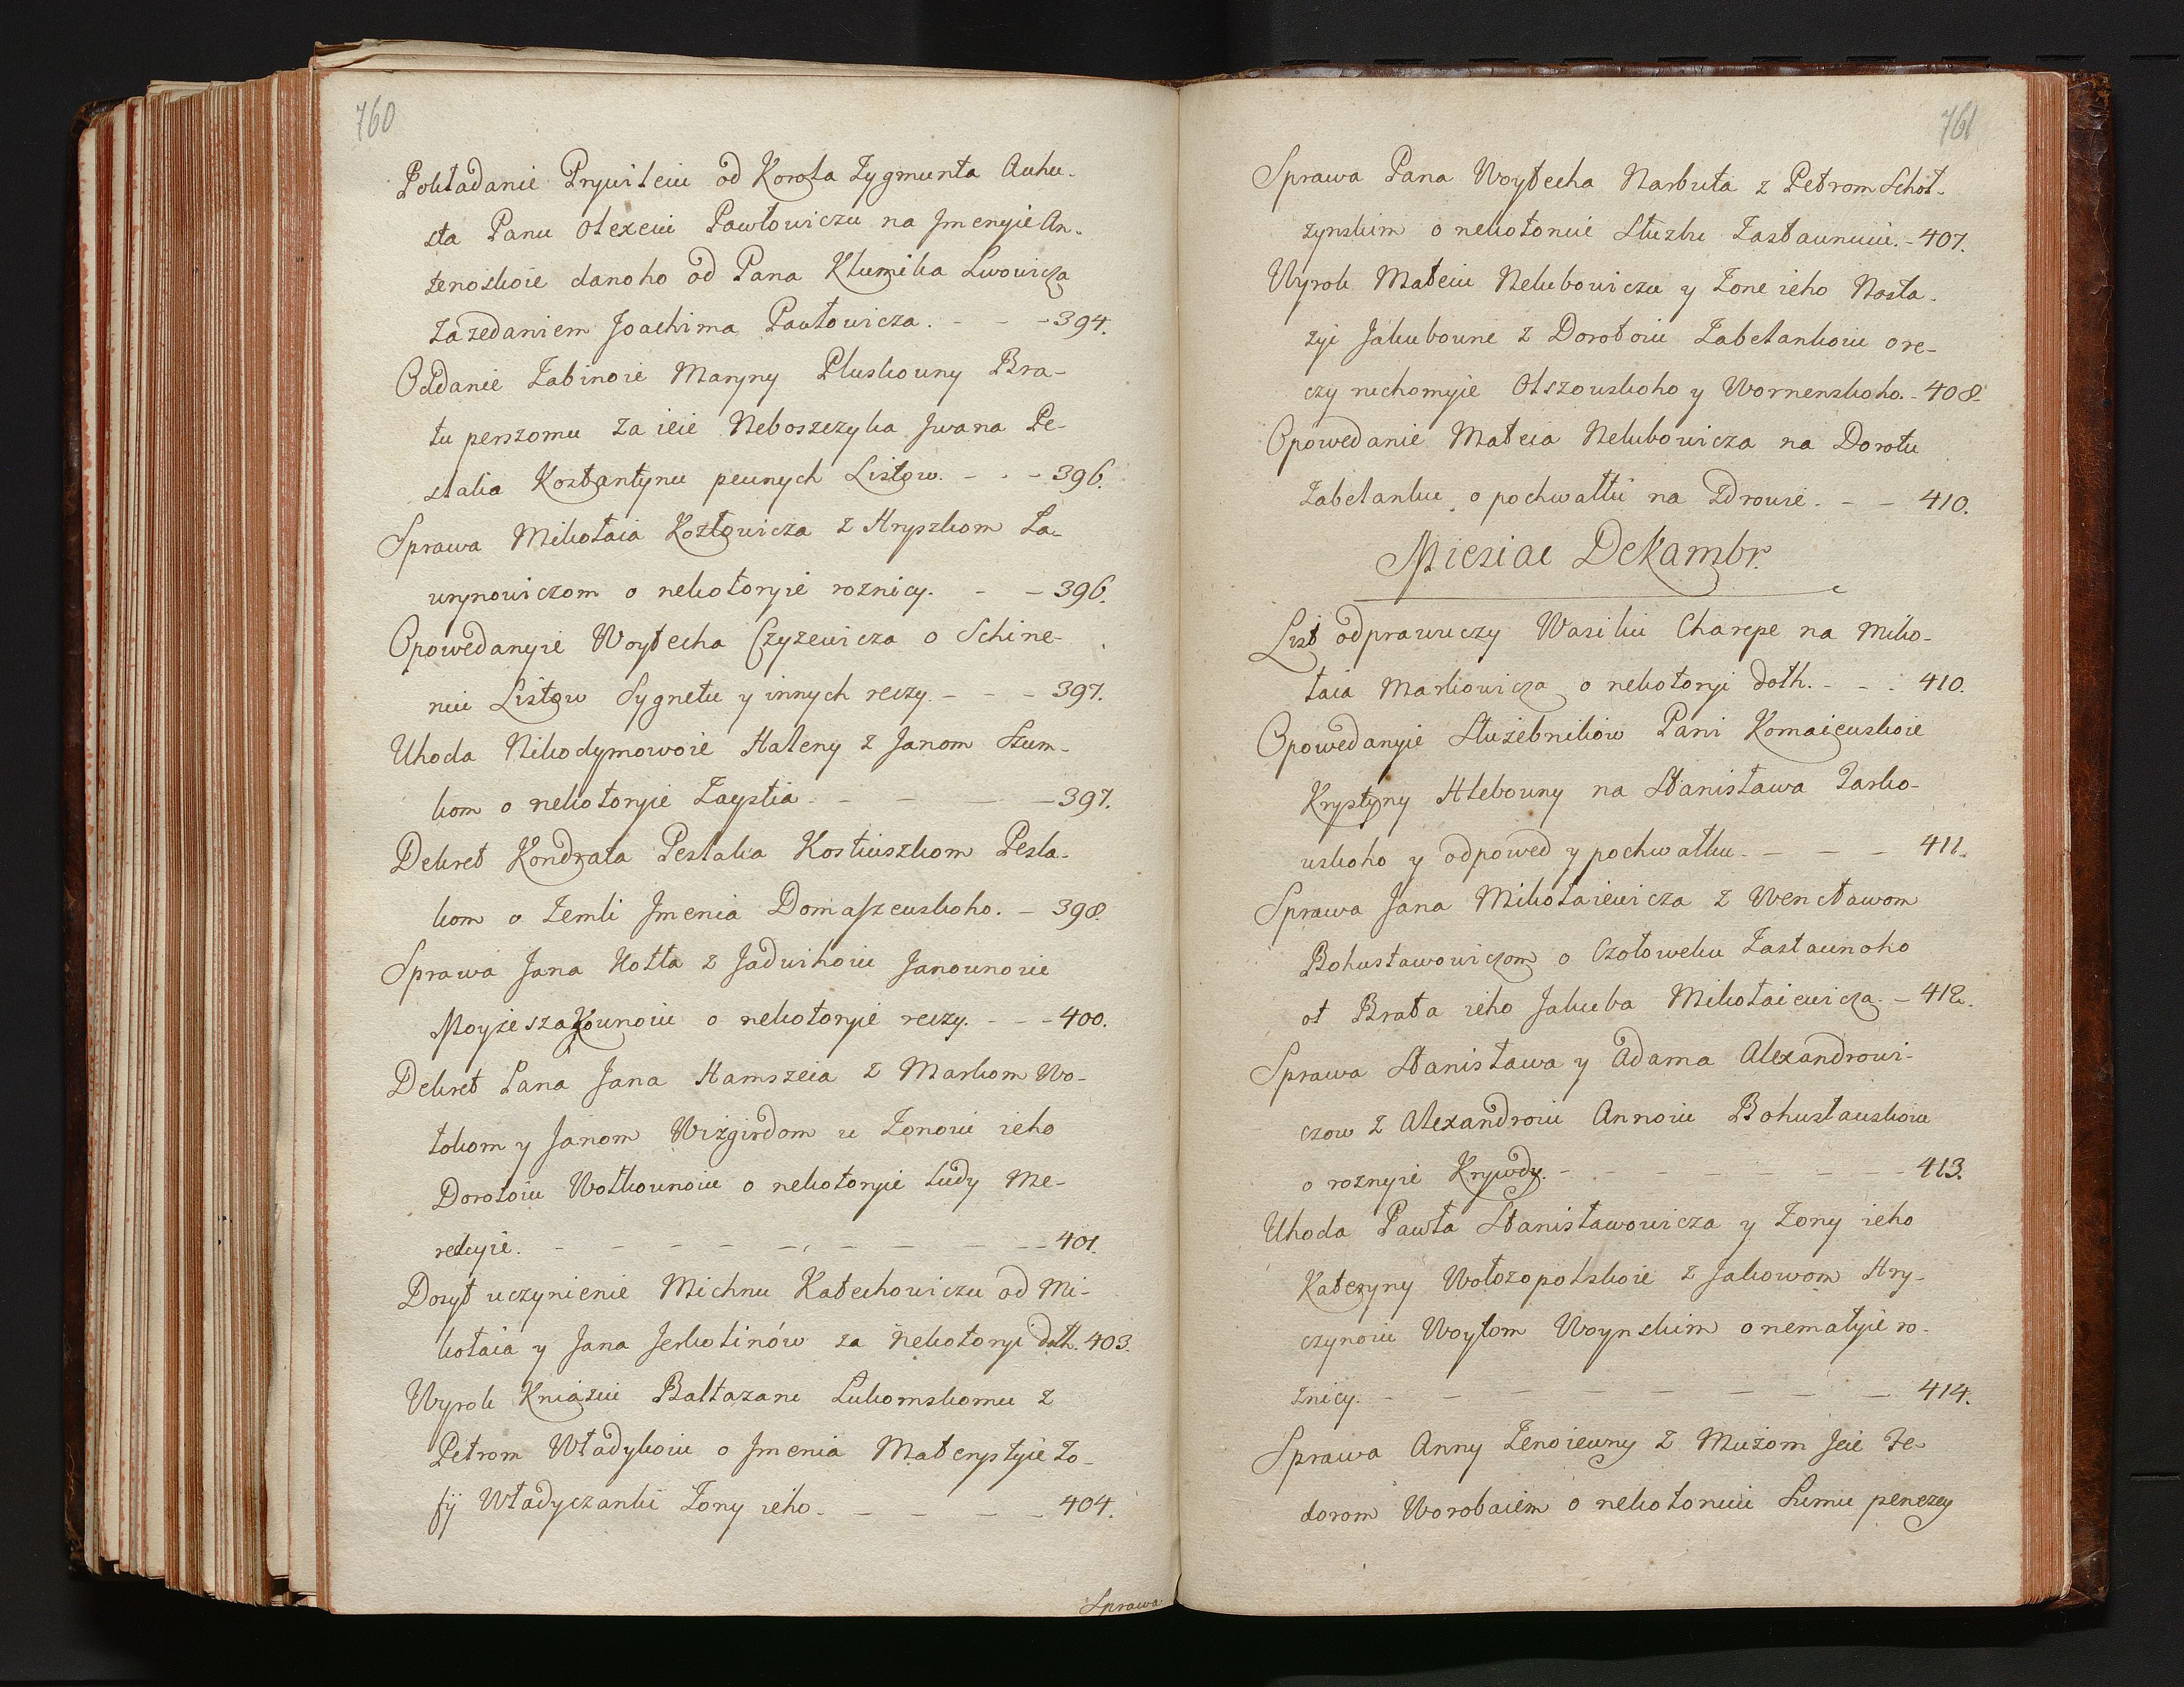 760
Pokładanie Prywileiu od Korola Zygmunta Auhu-
sta Panu Olexeiu Pawłowiczu na Jmenyie An-
tenoskoie danoho od Pana Klumika Lwowicza
Zazedaniem Joachima Pawłowicza. - - - 394.
Oddanie Zabinoie Maryny Pluskouny Bra-
tu perszomu za ieie Neboszczyka Jwana Pe-
slaka Kostantynu peunych Listow. - - - 396.
Sprawa Mikołaia Kozłowicza z Hryszkom La-
wrynowiczom o nekotoryie roznicy. - - 396.
Opowedanyie Woytecha Czyzewicza o Schine-
niu Listow Sygnetu y innych reczy. - - - 397.
Uhoda Nikodymowoie Haleny z Janom Szum-
kom o nekotoryie Zaystia - - - - 397.
Dekret Kondrata Peslaka Kostiuszkom Pesla-
kom o Zemli Jmenia Domaszeuskoho. - 398.
Sprawa Jana Kotła z Jadwihoiu Janounoiu
Moyżeszakounoiu o nekotoryie reczy. - - - 400.
Dekret Pana Jana Hamszeia z Markom Wo-
łokom y Janom Wiżgirdom u Żonoiu ieho
Dorotoiu Wołkounoiu o nekotoryie Ludy Me-
reckyie. - - - - - - - - - 401.
Dosyt uczynienie Michnu Katechowiczu od Mi-
kołaia y Jana Jerkolinów za Nekotoryi dołh. 403.
Wyrok Kniaziu Baltazaru Lukomskomu z
Petrom Władykoiu o Jmenia Materystyie Zo-
fij Władyczanki Żony ieho. - - - - 404.
Sprawa
761
Sprawa Pana Woytecha Narbuta z Petrom Schoł-
zynskim o nekotoruiu Służbu Zastaunuiu. - 407.
Wyrok Mateiu Nelubowiczu y Żone ieho Nasta-
zyi Jakuboune z Dorotoiu Zabelankoiu o re-
czy ruchomyie Olszouskoho y Wornenskoho. - 408.
Opowedanie Mateia Nelubowicza na Dorotu
Zabelanku o pochwałku na Zdrowie. - - 410.
Miesiac Dekambr.
List odprawuczy Wasiliu Charepe na Miko-
łaia Markowicza o nekotoryi dołh. - - - 410.
Opowedanyie Służebnikow Pani Komaieuskoie
Krystyny Hlebouny na Stanisława Jasko-
uskoho y odpowed y pochwałku. - - - 411.
Sprawa Jana Mikołaiewicza z Wencławom
Bohusławowiczom o Czołoweku Zastaunoho
ot Brata ieho Jakuba Mikołaiewicza. - 412.
Sprawa Stanisława y Adama Alexandrowi-
czow z Alexandroiu Annoiu Bohusłauskoiu
o roznyie Krywdy. - - - - - - - 413.
Uhoda Pawła Stanisławowicza y Żony ieho
Kateryny Wołozopolskoie z Jakowom Hry-
czynoiu Woytom Woynskim o nemałyie ro-
znicy. - - - - - - - - 414.
Sprawa Anny Zenoieuny z Mużom Jeie Fe-
dorom Worobaiem o nekotoruiu Sumu penezey